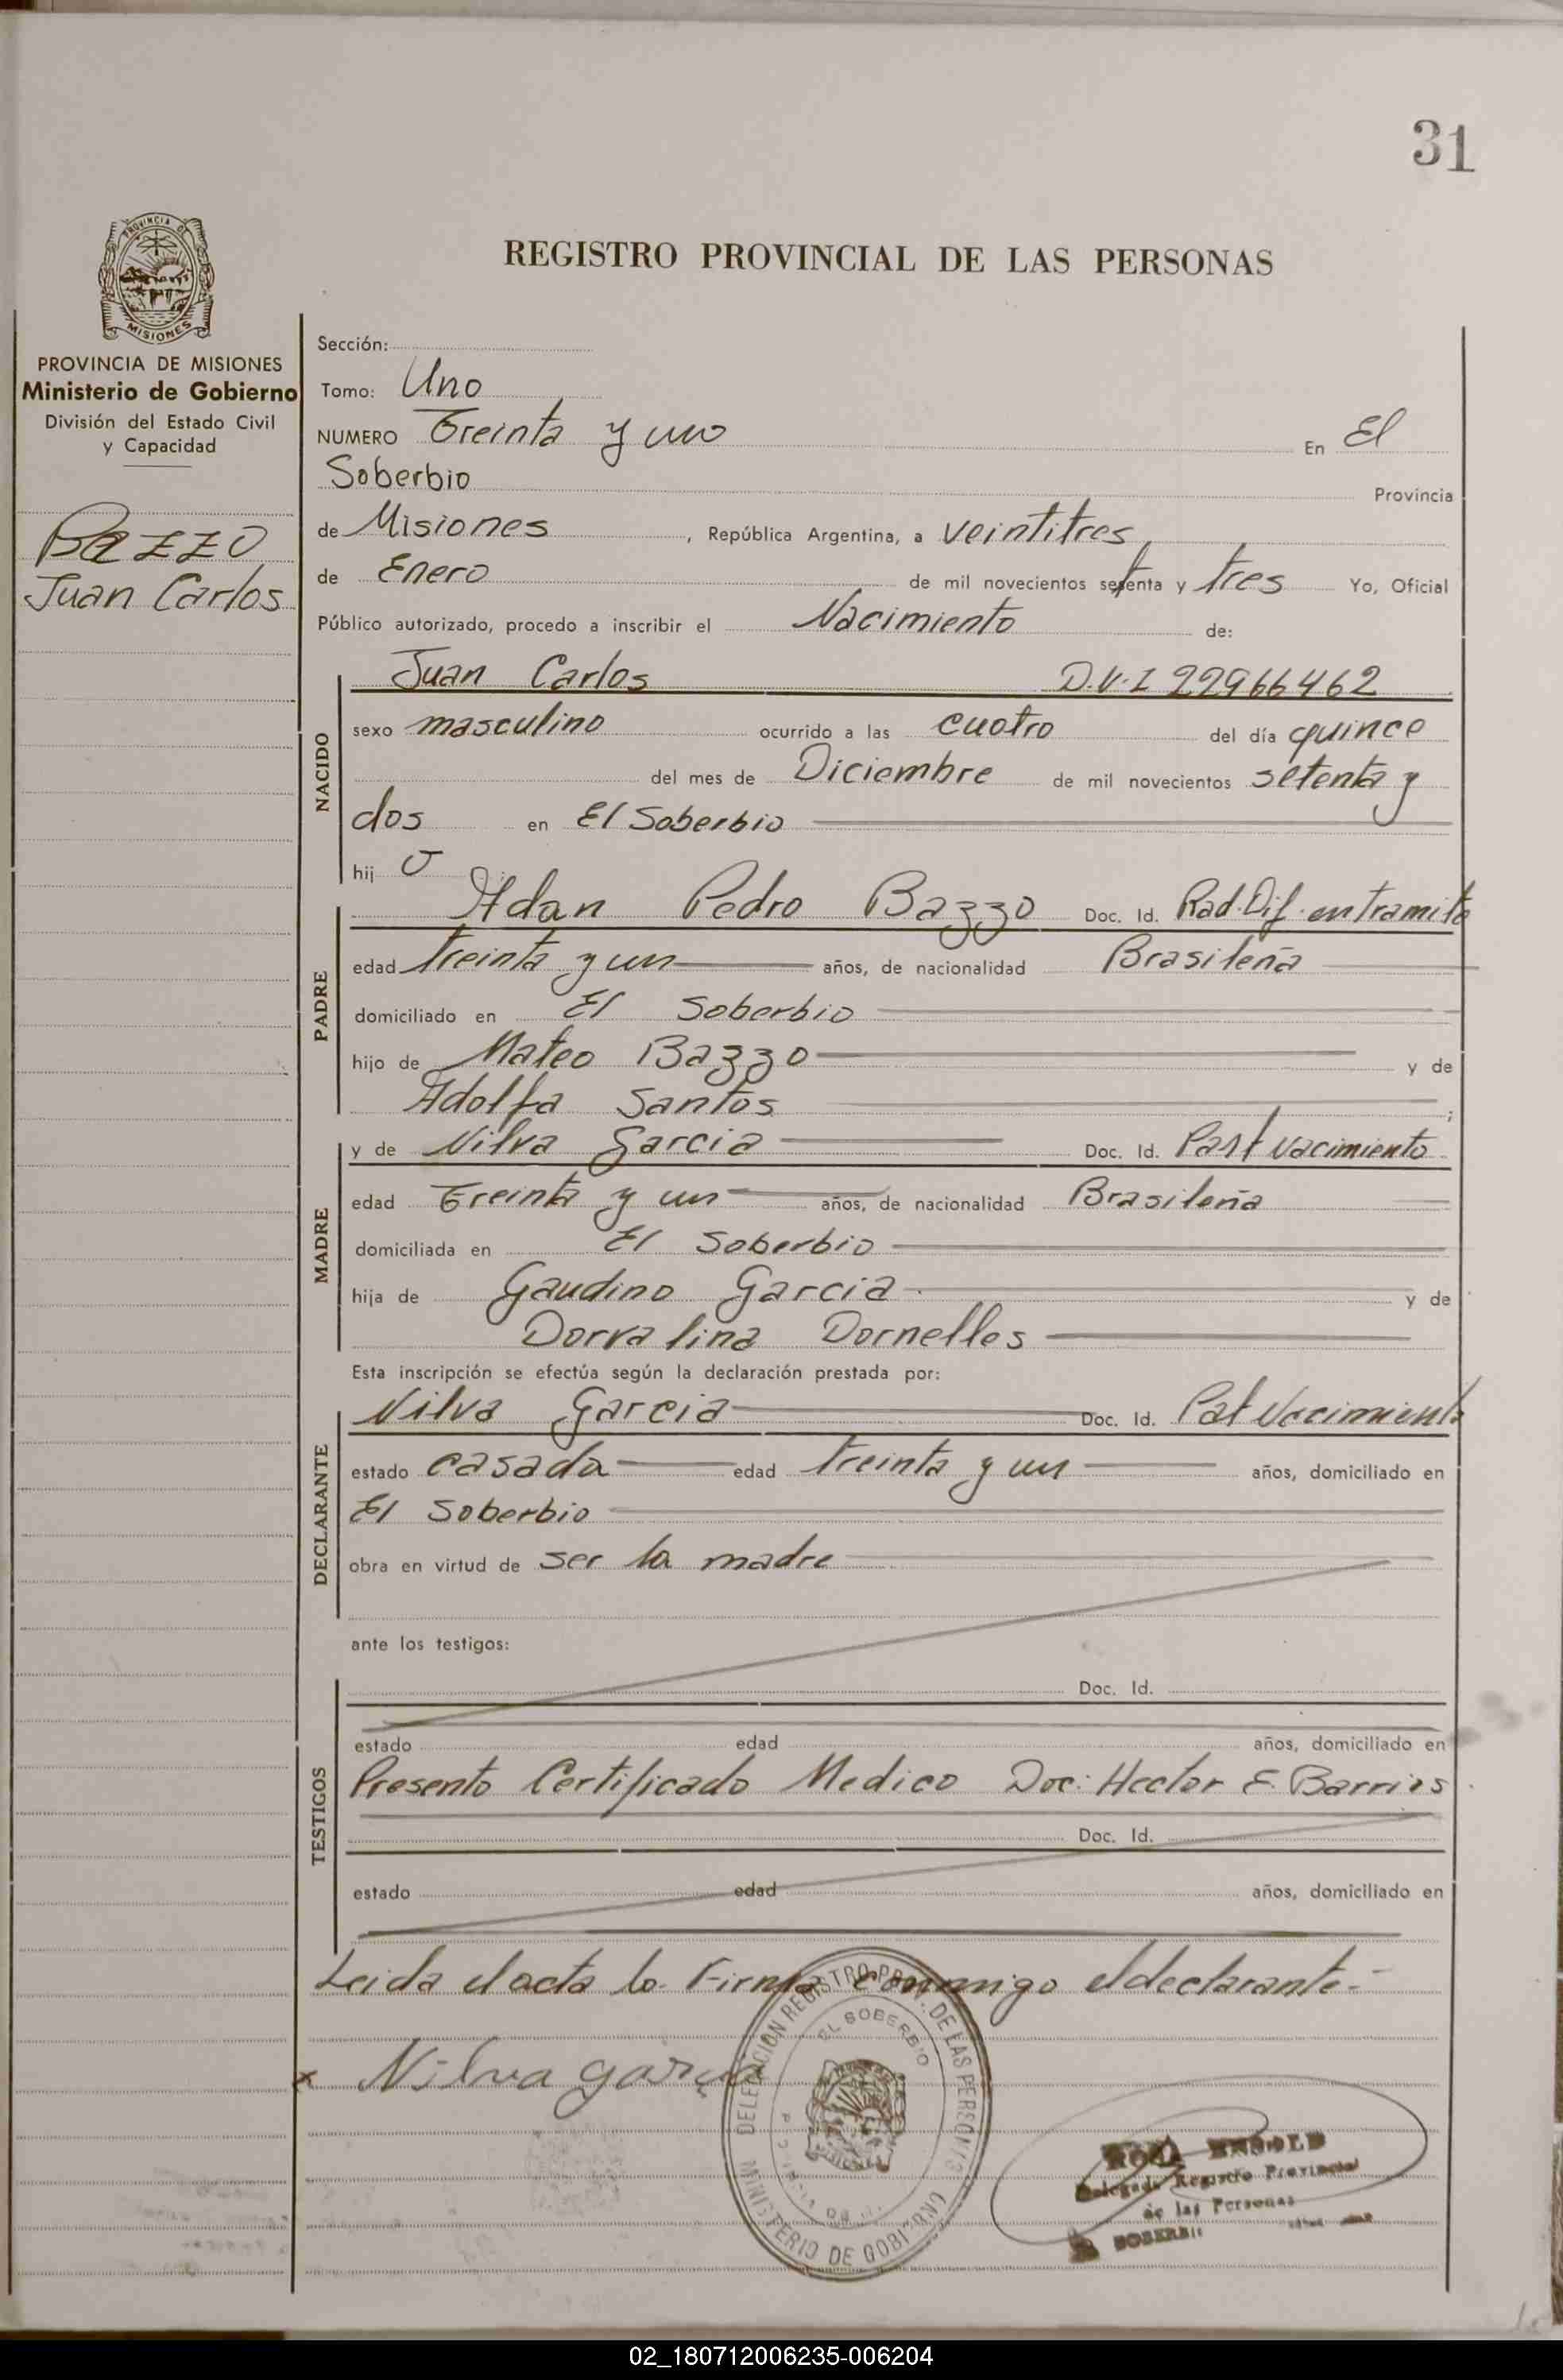 31
PROVINCIA DE
MISIONES
PROVINCIA DE MISIONES
Ministerio de Gobierno
División del Estado Civil
y Capacidad
BAZZO
Juan Carlos
REGISTRO PROVINCIAL DE LAS PERSONAS
Sección:
Tomo: Uno
NUMERO Treinta y uno En El
Soberbio Provincia
de Misiones, República Argentina, a veintitres
de Enero de mil novecientos setenta y tres Yo, Oficial
Público autorizado, procedo a inscribir el Nacimiento de:
NACIDO
Juan Carlos D.N.I 22966462
sexo masculino ocurrido a las cuatro del día quince
del mes de Diciembre de mil novecientos setenta y
dos en El Soberbio
hijo
PADRE
Adan Pedro Bazzo Doc. Id. Rad. Dif. en tramite
edad treinta y un años, de nacionalidad Brasileña
domiciliado en El Soberbio
hijo de Mateo Bazzo y de
Adolfa Santos ;
MADRE
y de Nilva Garcia Doc. Id. Part Nacimiento
edad Treinta y un años, de nacionalidad Brasileña
domiciliada en El Soberbio
hija de Gaudino Garcia y de
Dorvalina Dornelles
Esta inscripción se efectúa según la declaración prestada por:
DECLARANTE
Nilva Garcia Doc. Id. Pat Nacimiento
estado casada edad treinta y un años, domiciliado en
El Soberbio
obra en virtud de ser la madre
ante los testigos:
TESTIGOS
Doc. Id.
estado edad años, domiciliado en
Presento Certificado Medico Doc: Hector E. Barrios
Doc. Id.
estado edad años, domiciliado en
Leida el acta la Firma conmigo el declarante.-
x Nilva garcia
DELEGACION REGISTRO PROV. DE LAS PERSONAS
EL SOBERBIO
MINISTERIO DE GOBIERNO
Delegado Registro Provincial
de las Personas
SOBERBIO
02_180712006235-006204